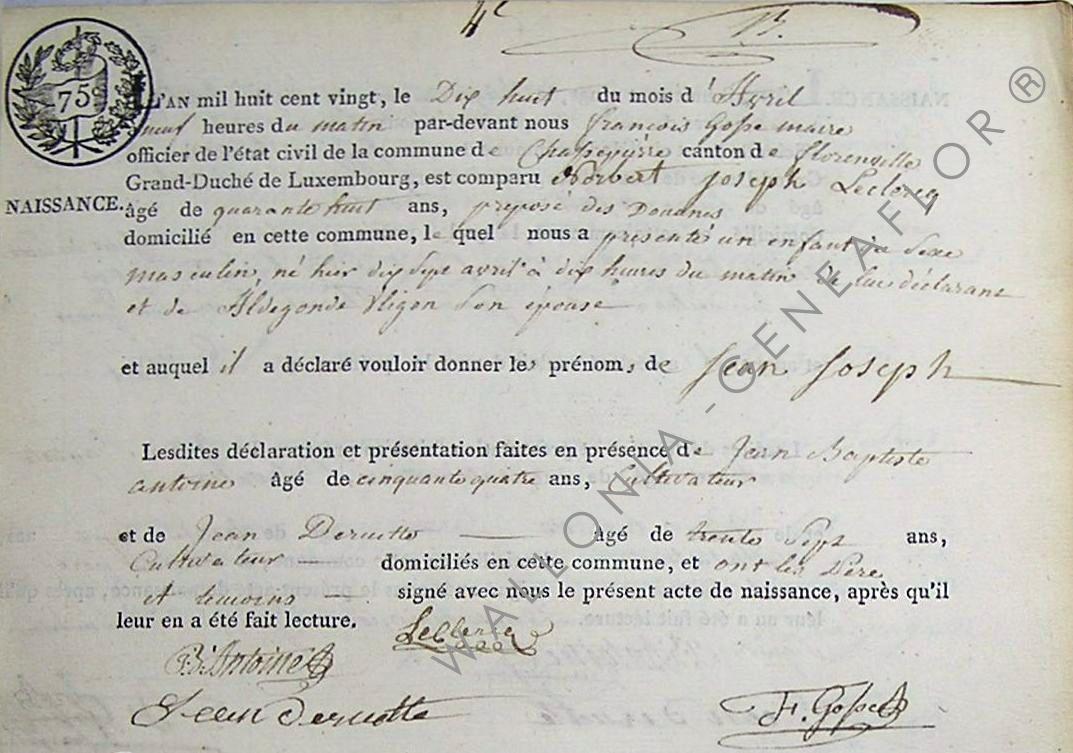 4e
75
L'AN mil huit cent vingt, le Dix huit du mois d'Avril
neuf heures du matin par-devant nous françois Gosse maire
officier de l'état civil de la commune de Chassepierre canton de florenville
Grand-Duché de Luxembourg, est comparu Norbert Joseph Leclercq
NAISSANCE. âgé de quarante huit ans, preposé des Douanes
domicilié en cette commune, le quel nous a présenté un enfant du Sexe
masculin, né hier dix Sept avril à dix heures du matin de lui déclarant
et de Aldegonde Sson épouse
et auquel il a déclaré vouloir donner les prénoms de Jean Joseph
Lesdites déclaration et présentation faites en présence de Jean Baptiste
antoine âgé de cinquante quatre ans, Cultivateur
et de Jean Deruette âgé de trente Sept ans,
Cultivateur domiciliés en cette commune, et ont les Père
et temoins signé avec nous le présent acte de naissance, après qu'il
leur en a été fait lecture.
Leclercq
B. Antoine
Jean deruette
F. Gosse
WALLONIA - GENEAFLOR ®